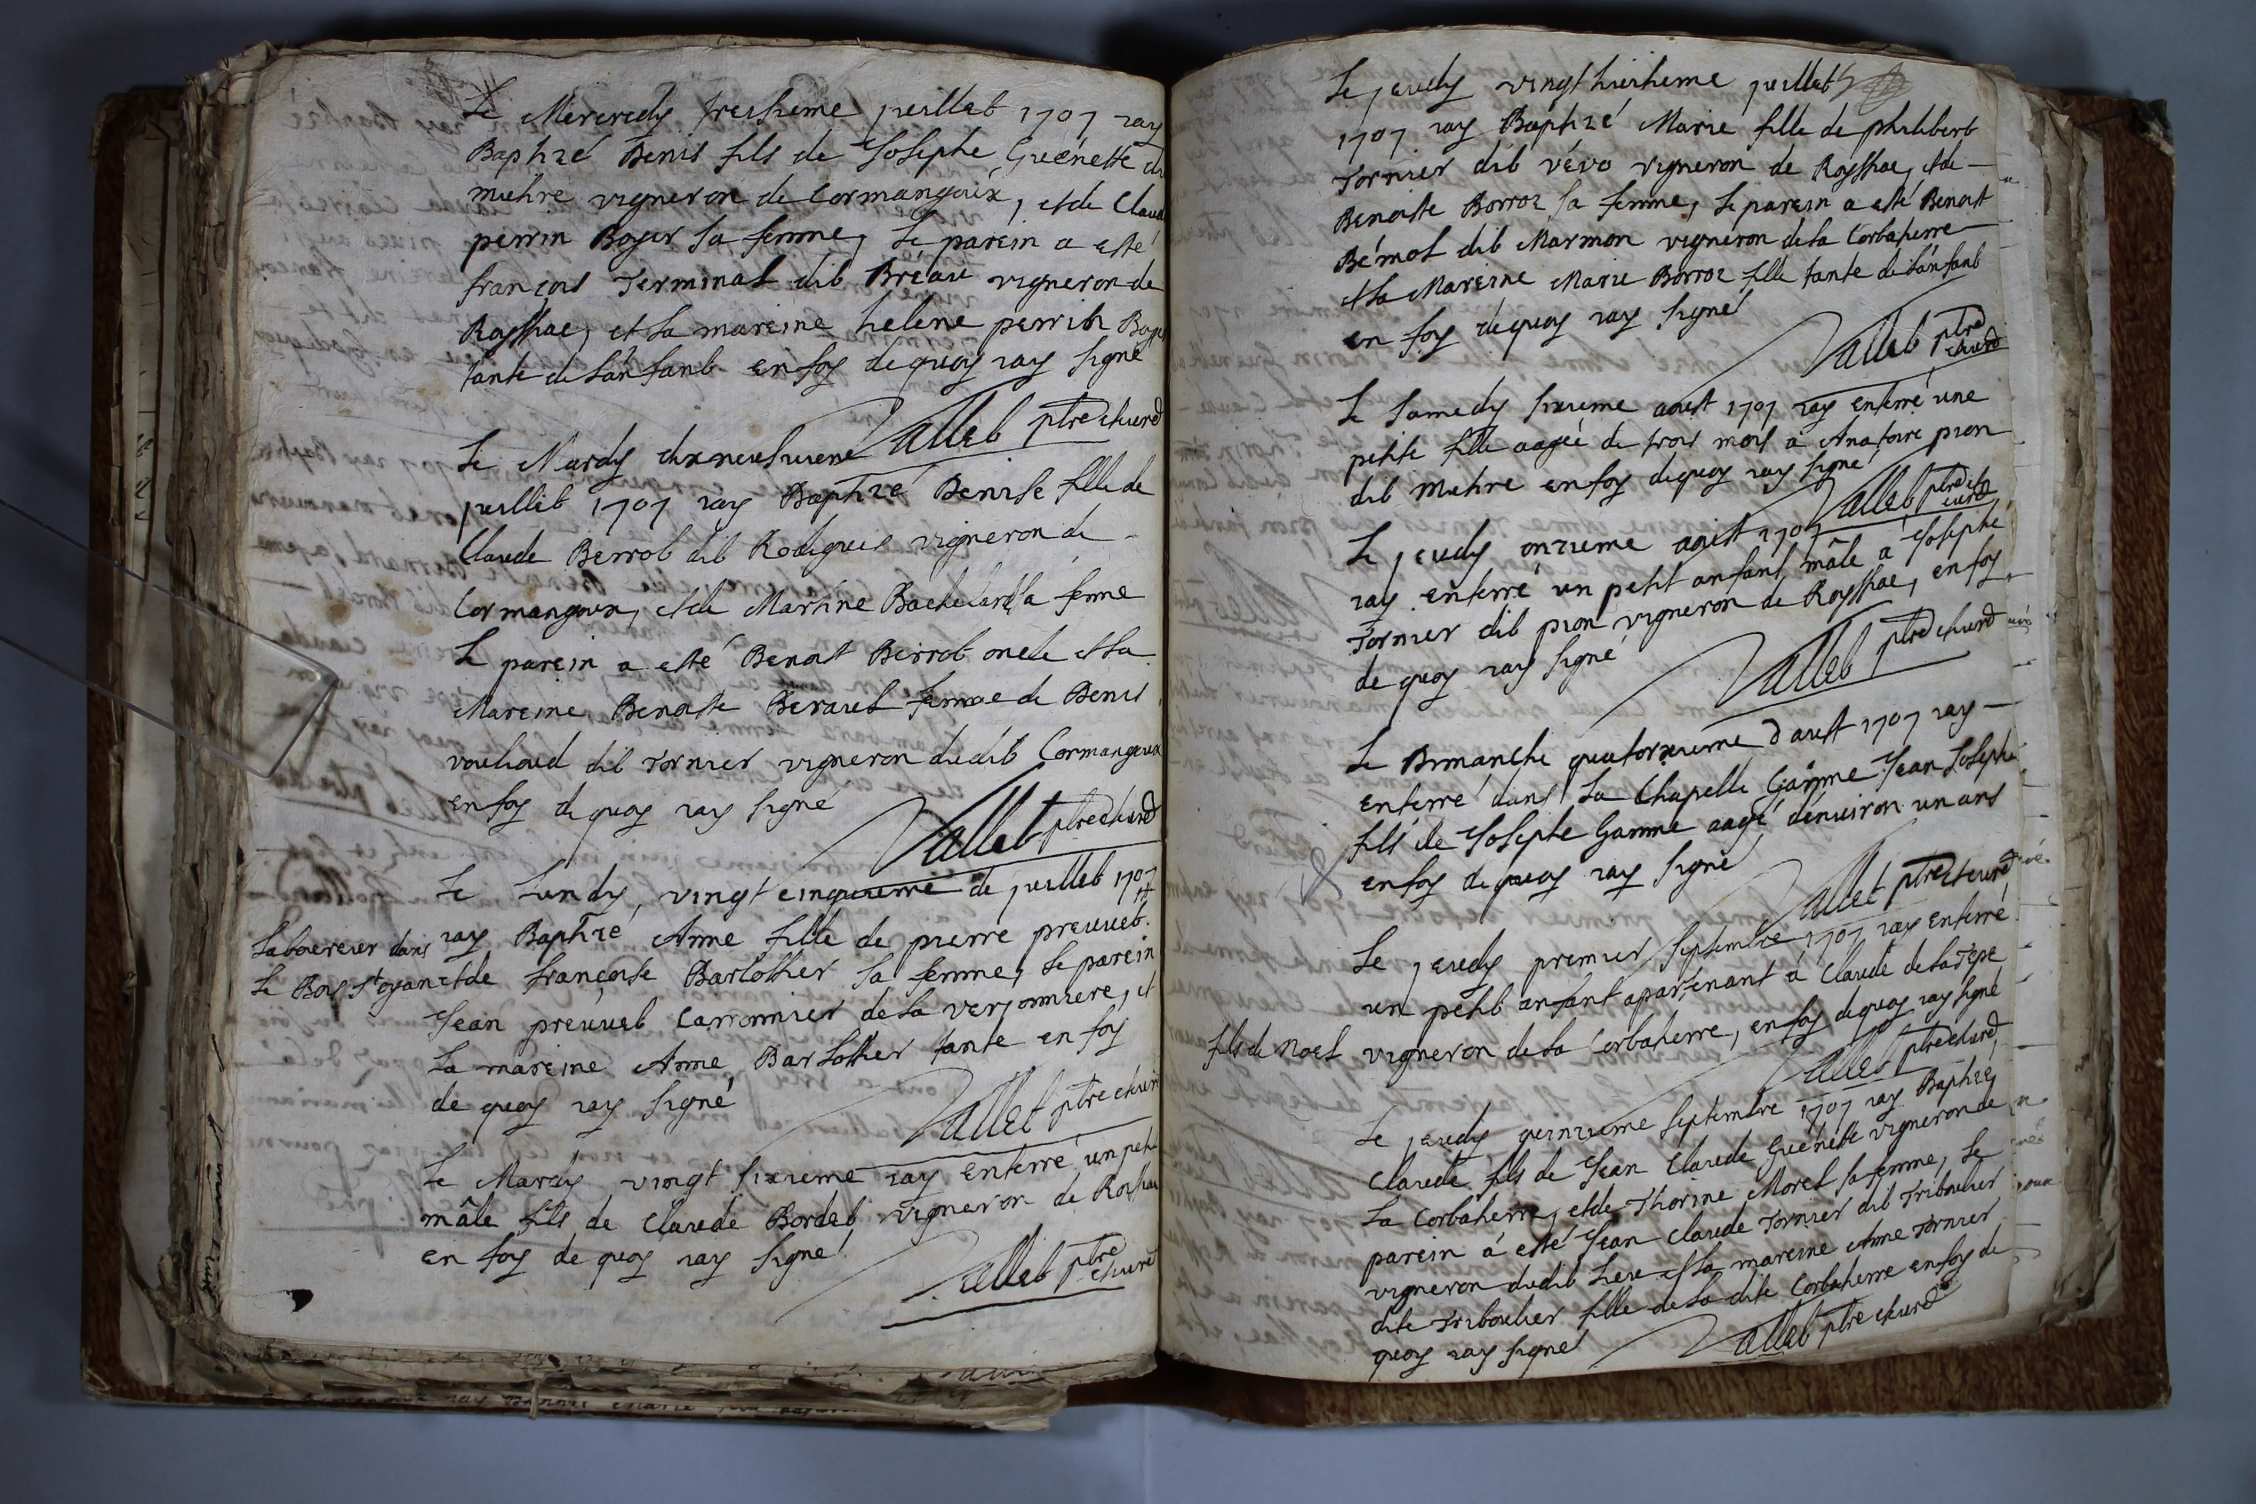 Le Mercredy treshieme juillet 1707 iay
Baptizé Denis fils de Josephe Guenette dit
mithre vigneron de Cormangoux, et de Claud
perrin Boyer sa femme, le parein a esté
françois Terminal dit Bréau vigneron de
Roissiae, et la mareine helene perrin Boyer
tante de l'anfant en foy de quoy iay signé
Vallet ptre et curé
Le Mardy dixneufvieme
juillet 1707 iay Baptizé Denise fille de
Claude Berrot dit Rodigues vigneron de
Cormangoux, et de Martine Bachelard sa femme
le parein a esté Benoit Berrot oncle et la
Mareine Benoite Beraud femme de Denis
vouhoud dit Tornier vigneron dudit Cormangoux
en foy de quoy iay signé
Vallet ptre et curé
Le Lundy, vingt cinquieme de juillet 1707
iay Baptizé Anne fille de pierre preuvet #
laboureur dans
le Bois st oyan et de françoise Barlottier sa femme, le parein
Jean preuvet Carronnier de la verjonniere, et
la mareine Anne Barlottier tante en foy
de quoy iay signé
Vallet ptre et curé
Le Mardy vingt sixieme iay enterré un petit
mâle fils de Claude Bordet vigneron de Roissiae
en foy de quoy iay signé
Vallet ptre
et curé
Le jeudy vingthuitieme juillet
1707 iay Baptizé Marie fille de philibert
Tornier dit vévo vigneron de Royssiae, et de
Benoite Borroz sa femme, le parein a esté Benoit
Bémol dit Marmon vigneron de la Corbatiere
et la Mareine Marie Borroz fille tante de l'anfant
en foy de quoy iay signé
Vallet ptre
et curé
Le samedy sixieme aoust 1707 iay enterré une
petite fille aagée de trois mois a Anatoire pion
dit Mithre en foy de quoy iay signé
Vallet ptre et
curé
Le jeudy onzieme aoust 1707
iay enterré un petit anfant mâle a Josephe
Tornier dit pion vigneron de Royssiae, en foy
de quoy iay signé
Vallet ptre et curé
Le Dimanche quatorzieme d'aust 1707 iay
enterré dans la Chapelle Gamme Jean Josephe
fils de Josephe Gamme aagé d'environ un ans
en foy de quoy iay signé
Vallet ptre et curé
Le jeudy premier septembre 1707 iay enterré
un petit anfant apartenant à Claude de la Tepe
fils de Noel vigneron de la Corbatiere, en foy de quoy iay signé
Vallet ptre et curé
Le jeudy quinzieme septembre 1707 iay Baptizé
Claude fils de Jean Claude Guenette vigneron de
la Corbatierre, et de Thorine Morel sa femme, le
parein à esté Jean Claude Tornier dit Triboulier
vigneron dudit lieu et la mareine Anne Tornier
dite Triboulier fille de la dite Corbatierre en foy de
quoy iay signé
Vallet ptre et curé